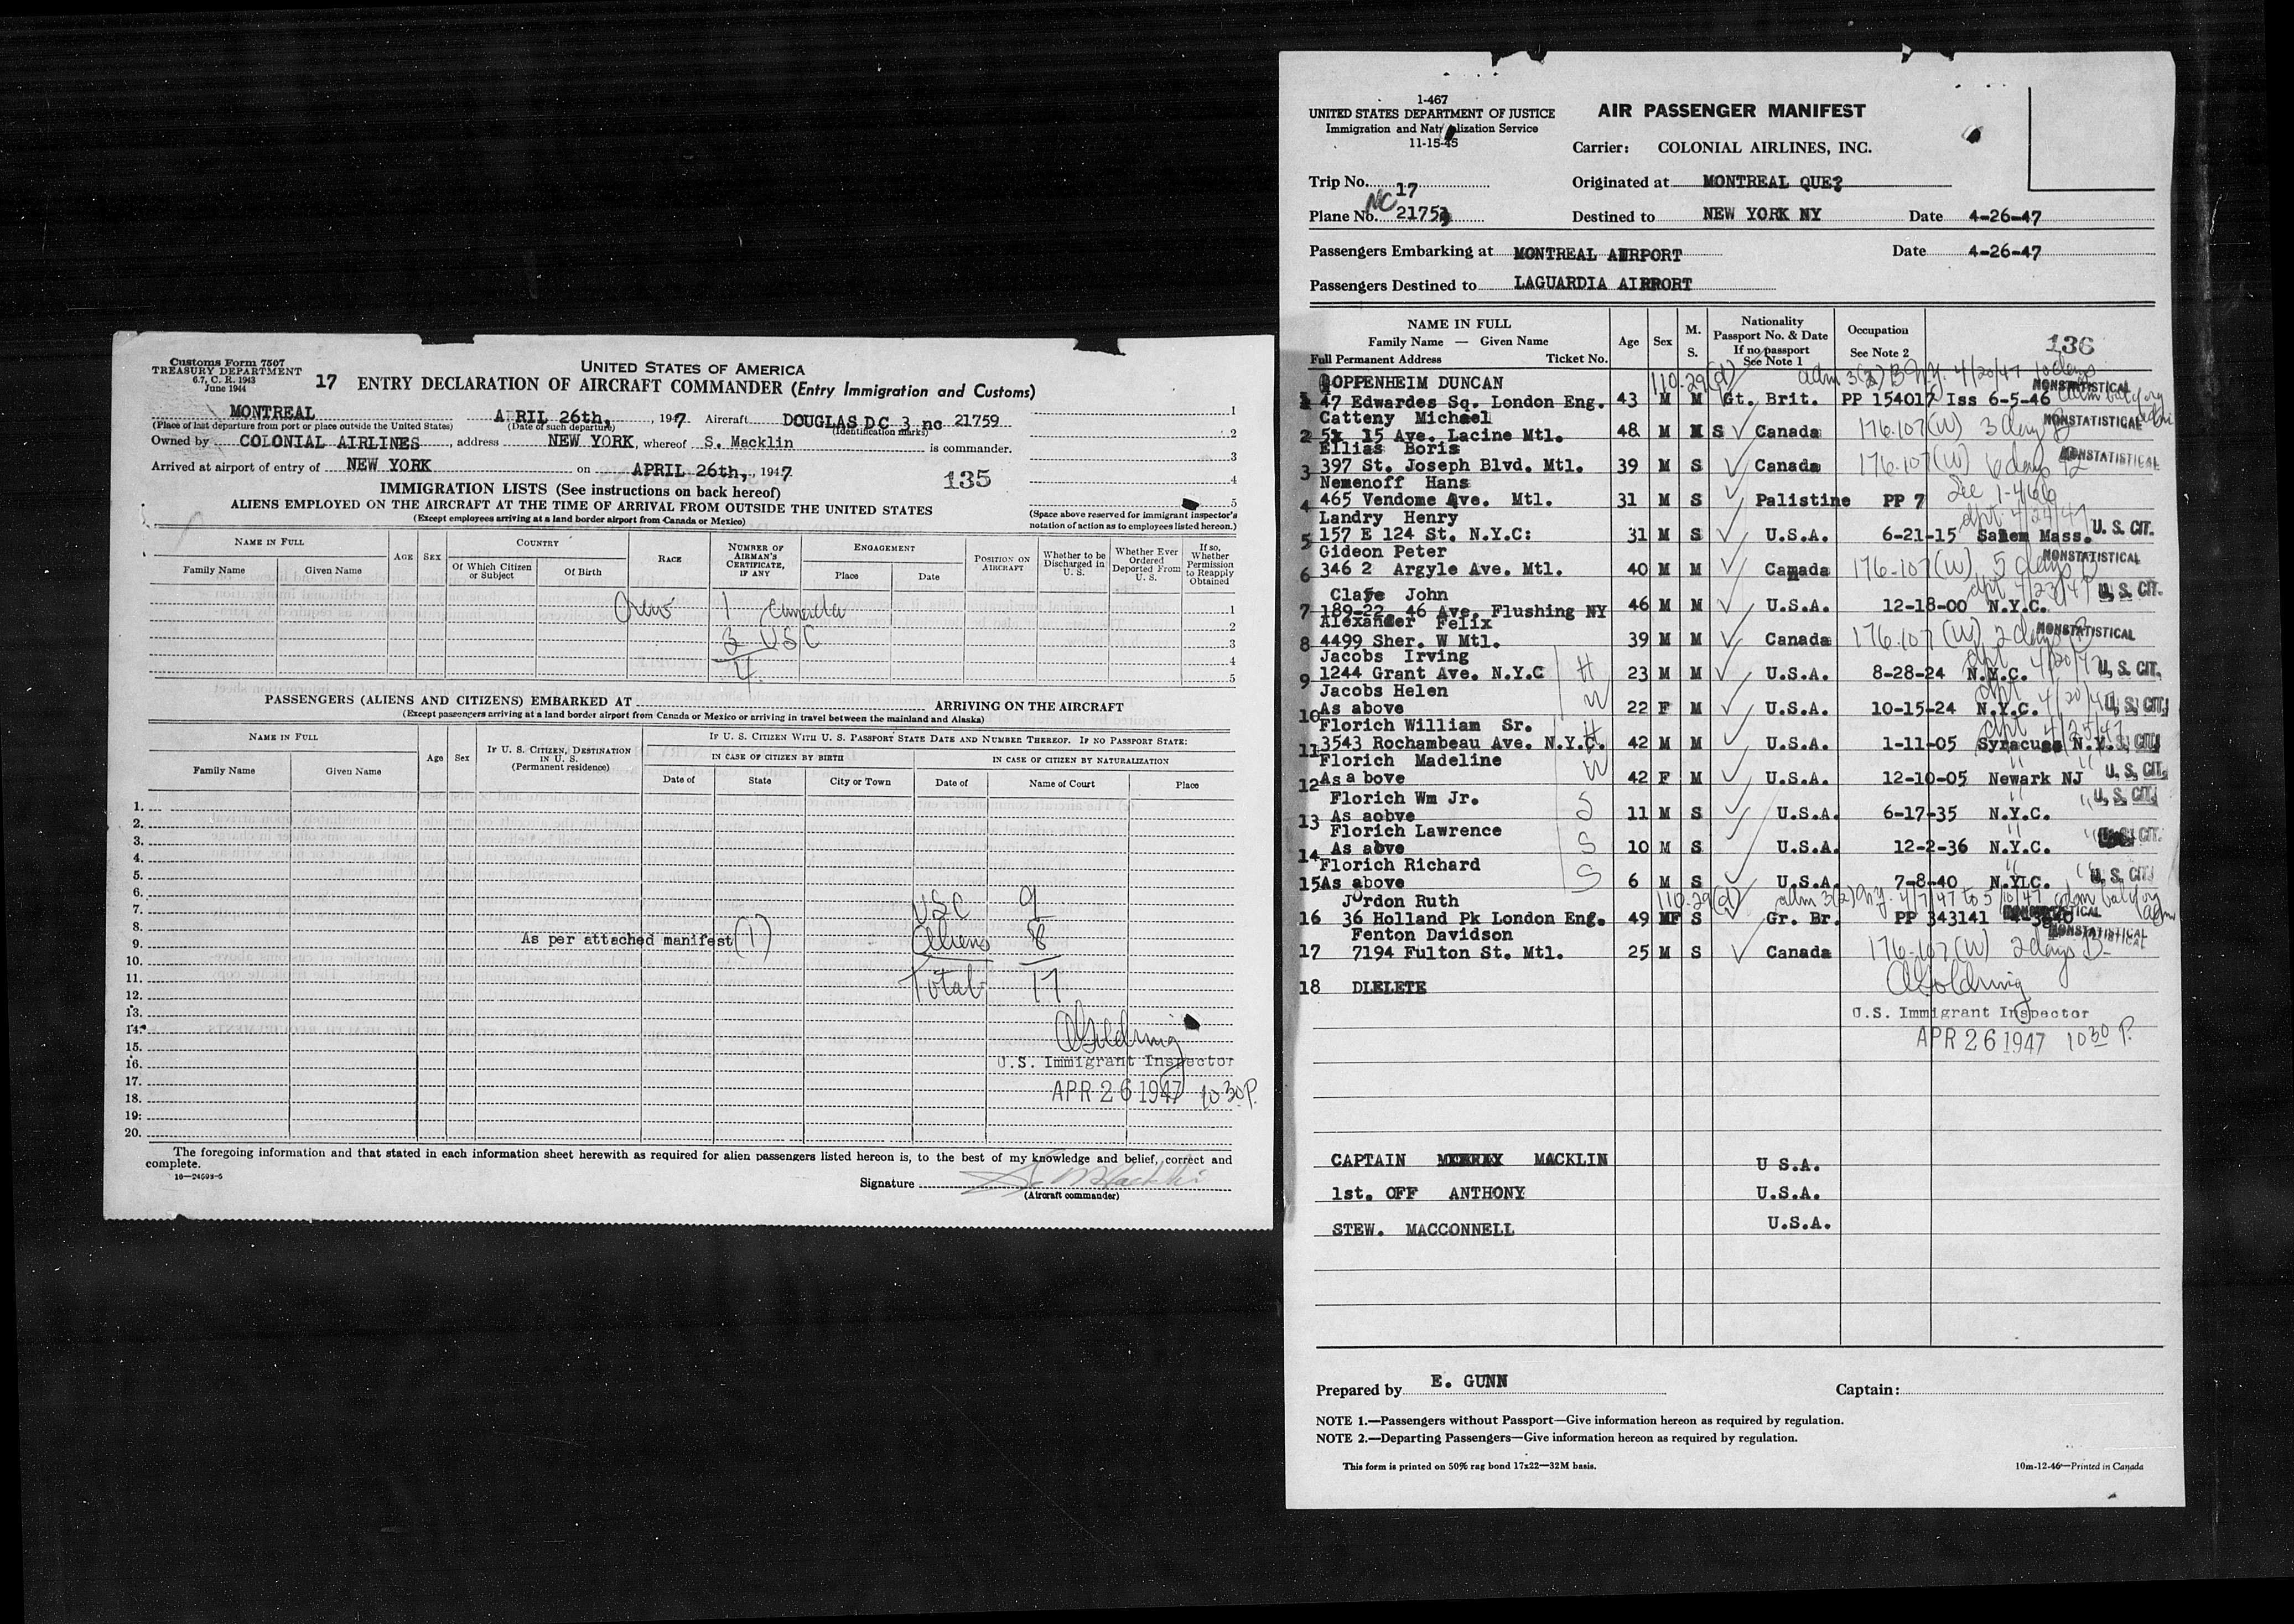 Customs Form 7507
TREASURY DEPARTMENT
6.7, C. R. 1943
June 1944
UNITED STATES OF AMERICA
17 ENTRY DECLARATION OF AIRCRAFT COMMANDER (Entry Immigration and Customs)
MONTREAL APRIL 26th, , 1947 Aircraft DOUGLAS DC 3 nc 21759
(Place of last departure from port or place outside the United States) (Date of such departure) (Identification marks)
Owned by COLONIAL AIRLINES , address NEW YORK , whereof S. Macklin is commander.
Arrived at airport of entry of NEW YORK on APRIL 26th, , 1947
135
1
2
3
4
5
IMMIGRATION LISTS (See instructions on back hereof)
ALIENS EMPLOYED ON THE AIRCRAFT AT THE TIME OF ARRIVAL FROM OUTSIDE THE UNITED STATES
(Except employees arriving at a land border airport from Canada or Mexico)
(Space above reserved for immigrant inspector's
notation of action as to employees listed hereon.)
NAME IN FULL AGE SEX COUNTRY RACE NUMBER OF AIRMAN'S CERTIFICATE, IF ANY ENGAGEMENT POSITION ON AIRCRAFT Whether to be Discharged in U. S. Whether Ever Ordered Deported From U. S. If so, Whether Permission to Reapply Obtained
Family Name Given Name Of Which Citizen or Subject Of Birth Place Date
Crew 1 Canada 1
2
3 USC 3
4 4
5
PASSENGERS (ALIENS AND CITIZENS) EMBARKED AT ARRIVING ON THE AIRCRAFT
(Except passengers arriving at a land border airport from Canada or Mexico or arriving in travel between the mainland and Alaska)
NAME IN FULL Age Sex IF U. S. CITIZEN, DESTINATION IN U. S. (Permanent residence) IF U. S. CITIZEN WITH U. S. PASSPORT STATE DATE AND NUMBER THEREOF. IF NO PASSPORT STATE:
IN CASE OF CITIZEN BY BIRTH IN CASE OF CITIZEN BY NATURALIZATION
Family Name Given Name Date of State City or Town Date of Name of Court Place
1.
2.
3.
4.
5.
6.
7. USC 9
8.
9. As per attached manifest (1) Aliens 8
10.
11. Total 17
12.
13.
14.
15.
16. U.S. Immigrant Inspector
17. APR 26 1947 10:30 P.
18.
19.
20.
The foregoing information and that stated in each information sheet herewith as required for alien passengers listed hereon is, to the best of my knowledge and belief, correct and
complete.
16—24603-5
Signature S. Macklin
(Aircraft commander)
1-467
UNITED STATES DEPARTMENT OF JUSTICE
Immigration and Naturalization Service
11-15-45
AIR PASSENGER MANIFEST
Carrier: COLONIAL AIRLINES, INC.
Trip No. 17 Originated at MONTREAL QUE?
Plane No. NC 2175 Destined to NEW YORK NY Date 4-26-47
Passengers Embarking at MONTREAL AIRPORT Date 4-26-47
Passengers Destined to LAGUARDIA AIRPORT
NAME IN FULL Age Sex M. S. Nationality Occupation
Family Name — Given Name Passport No. & Date
If no passport
Full Permanent Address Ticket No. See Note 1 See Note 2
136
OPPENHEIM DUNCAN 110.29(d) adm 3(2) B N.Y. 4/20/47 10 days NONSTATISTICAL
1 47 Edwardes Sq. London Eng. 43 M M Gt. Brit. PP 154017 Iss 6-5-46
Catteny Michael
2 5x 15 Ave. Lacine Mtl. 48 M M S Canada 176.107(W) 3 days B NONSTATISTICAL
Ellias Boris
3 397 St. Joseph Blvd. Mtl. 39 M S Canada 176.107(W) 6 days NONSTATISTICAL
Nemenoff Hans
4 465 Vendome Ave. Mtl. 31 M S Palistine PP 7 See 1-466
Landry Henry dpt. 4/24/47
5 157 E 124 St. N.Y.C: 31 M S U.S.A. 6-21-15 Salem Mass. U. S. CIT.
Gideon Peter
6 346 2 Argyle Ave. Mtl. 40 M M Canada 176-107(W) 5 days NONSTATISTICAL
Clare John dpt 4/23/47
7 189-22 46 Ave. Flushing NY 46 M M U.S.A. 12-18-00 N.Y.C. U. S. CIT.
Alexander Felix
8 4499 Sher. W Mtl. 39 M M Canada 176.107(W) 2 days B NONSTATISTICAL
Jacobs Irving dpt 4/20/47
9 1244 Grant Ave. N.Y.C H 23 M M U.S.A. 8-28-24 N.Y.C. U. S. CIT.
Jacobs Helen dpt 4/20/47
10 As above W 22 F M U.S.A. 10-15-24 N.Y.C. U. S. CIT.
Florich William Sr. dpt 4/25/47
11 3543 Rochambeau Ave. N.Y.C. H 42 M M U.S.A. 1-11-05 Syracuse N.Y. U. S. CIT.
Florich Madeline
12 As a bove W 42 F M U.S.A. 12-10-05 Newark NJ " U. S. CIT.
Florich Wm Jr.
13 As aobve S 11 M S U.S.A. 6-17-35 N.Y.C. " U. S. CIT.
Florich Lawrence
14 As above S 10 M S U.S.A. 12-2-36 N.Y.C. " U. S. CIT.
Florich Richard
15 As above S 6 M S U.S.A. 7-8-40 N.YLC. " U. S. CIT.
Jordon Ruth 110-29(d) adm 3(2) N.Y. 4/7/47 to 5/10/47
16 36 Holland Pk London Eng. 49 MF S Gr. Br. PP 343141 NONSTATISTICAL
Fenton Davidson NONSTATISTICAL
17 7194 Fulton St. Mtl. 25 M S Canada 176-107(W) 2 days B
18 DLELETE
U.S. Immigrant Inspector
APR 26 1947 10 30 P.
CAPTAIN MACKLIN U S.A.
1st. OFF ANTHONY U.S.A.
STEW. MACCONNELL U.S.A.
Prepared by E. GUNN Captain:
NOTE 1.—Passengers without Passport—Give information hereon as required by regulation.
NOTE 2.—Departing Passengers—Give information hereon as required by regulation.
This form is printed on 50% rag bond 17x22—32M basis. 10m-12-46—Printed in Canada